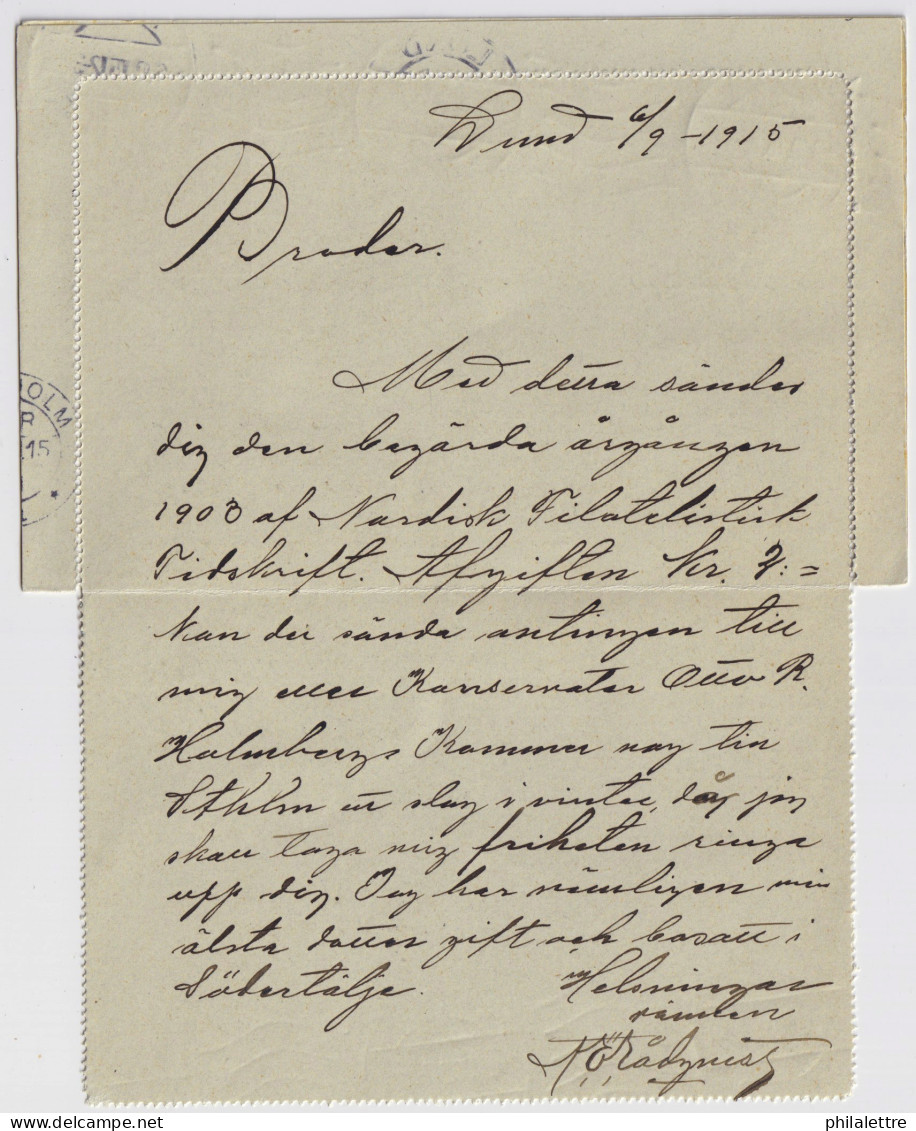 Lund 6/9 - 1915
Broder.
Med detta sänder
dig den begärda årgången
1903 af Nordisk Filatelistisk
Tidskrift. Afgiften Kr. 2:=
kan du sända antingen till
mig eller Konservator Otto R.
Holmbergs Kommer nog till
Sthlm ett slag i vinter, då jag
skall taga mig friheten ringa
upp dig. Jag har nämligen min
älsta dotter gift och bosatt i
Södertälje.
Helsningar
vännen
OLM
15
philalettre